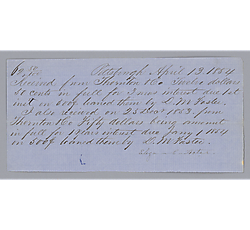 Pittsburgh April 12 1854
Received from Thornton & Co Twelve dollars
50 cents in full for 3 mos interest due 1st
inst on 800$ loaned them by L. M. Foster.
I also received on 23 Dec 1853 from
Thornton & Co Fifty dollars being amount
in full for 1 years interest due Jany 1 1854
on 500$ loaned them by L. M. Foster.